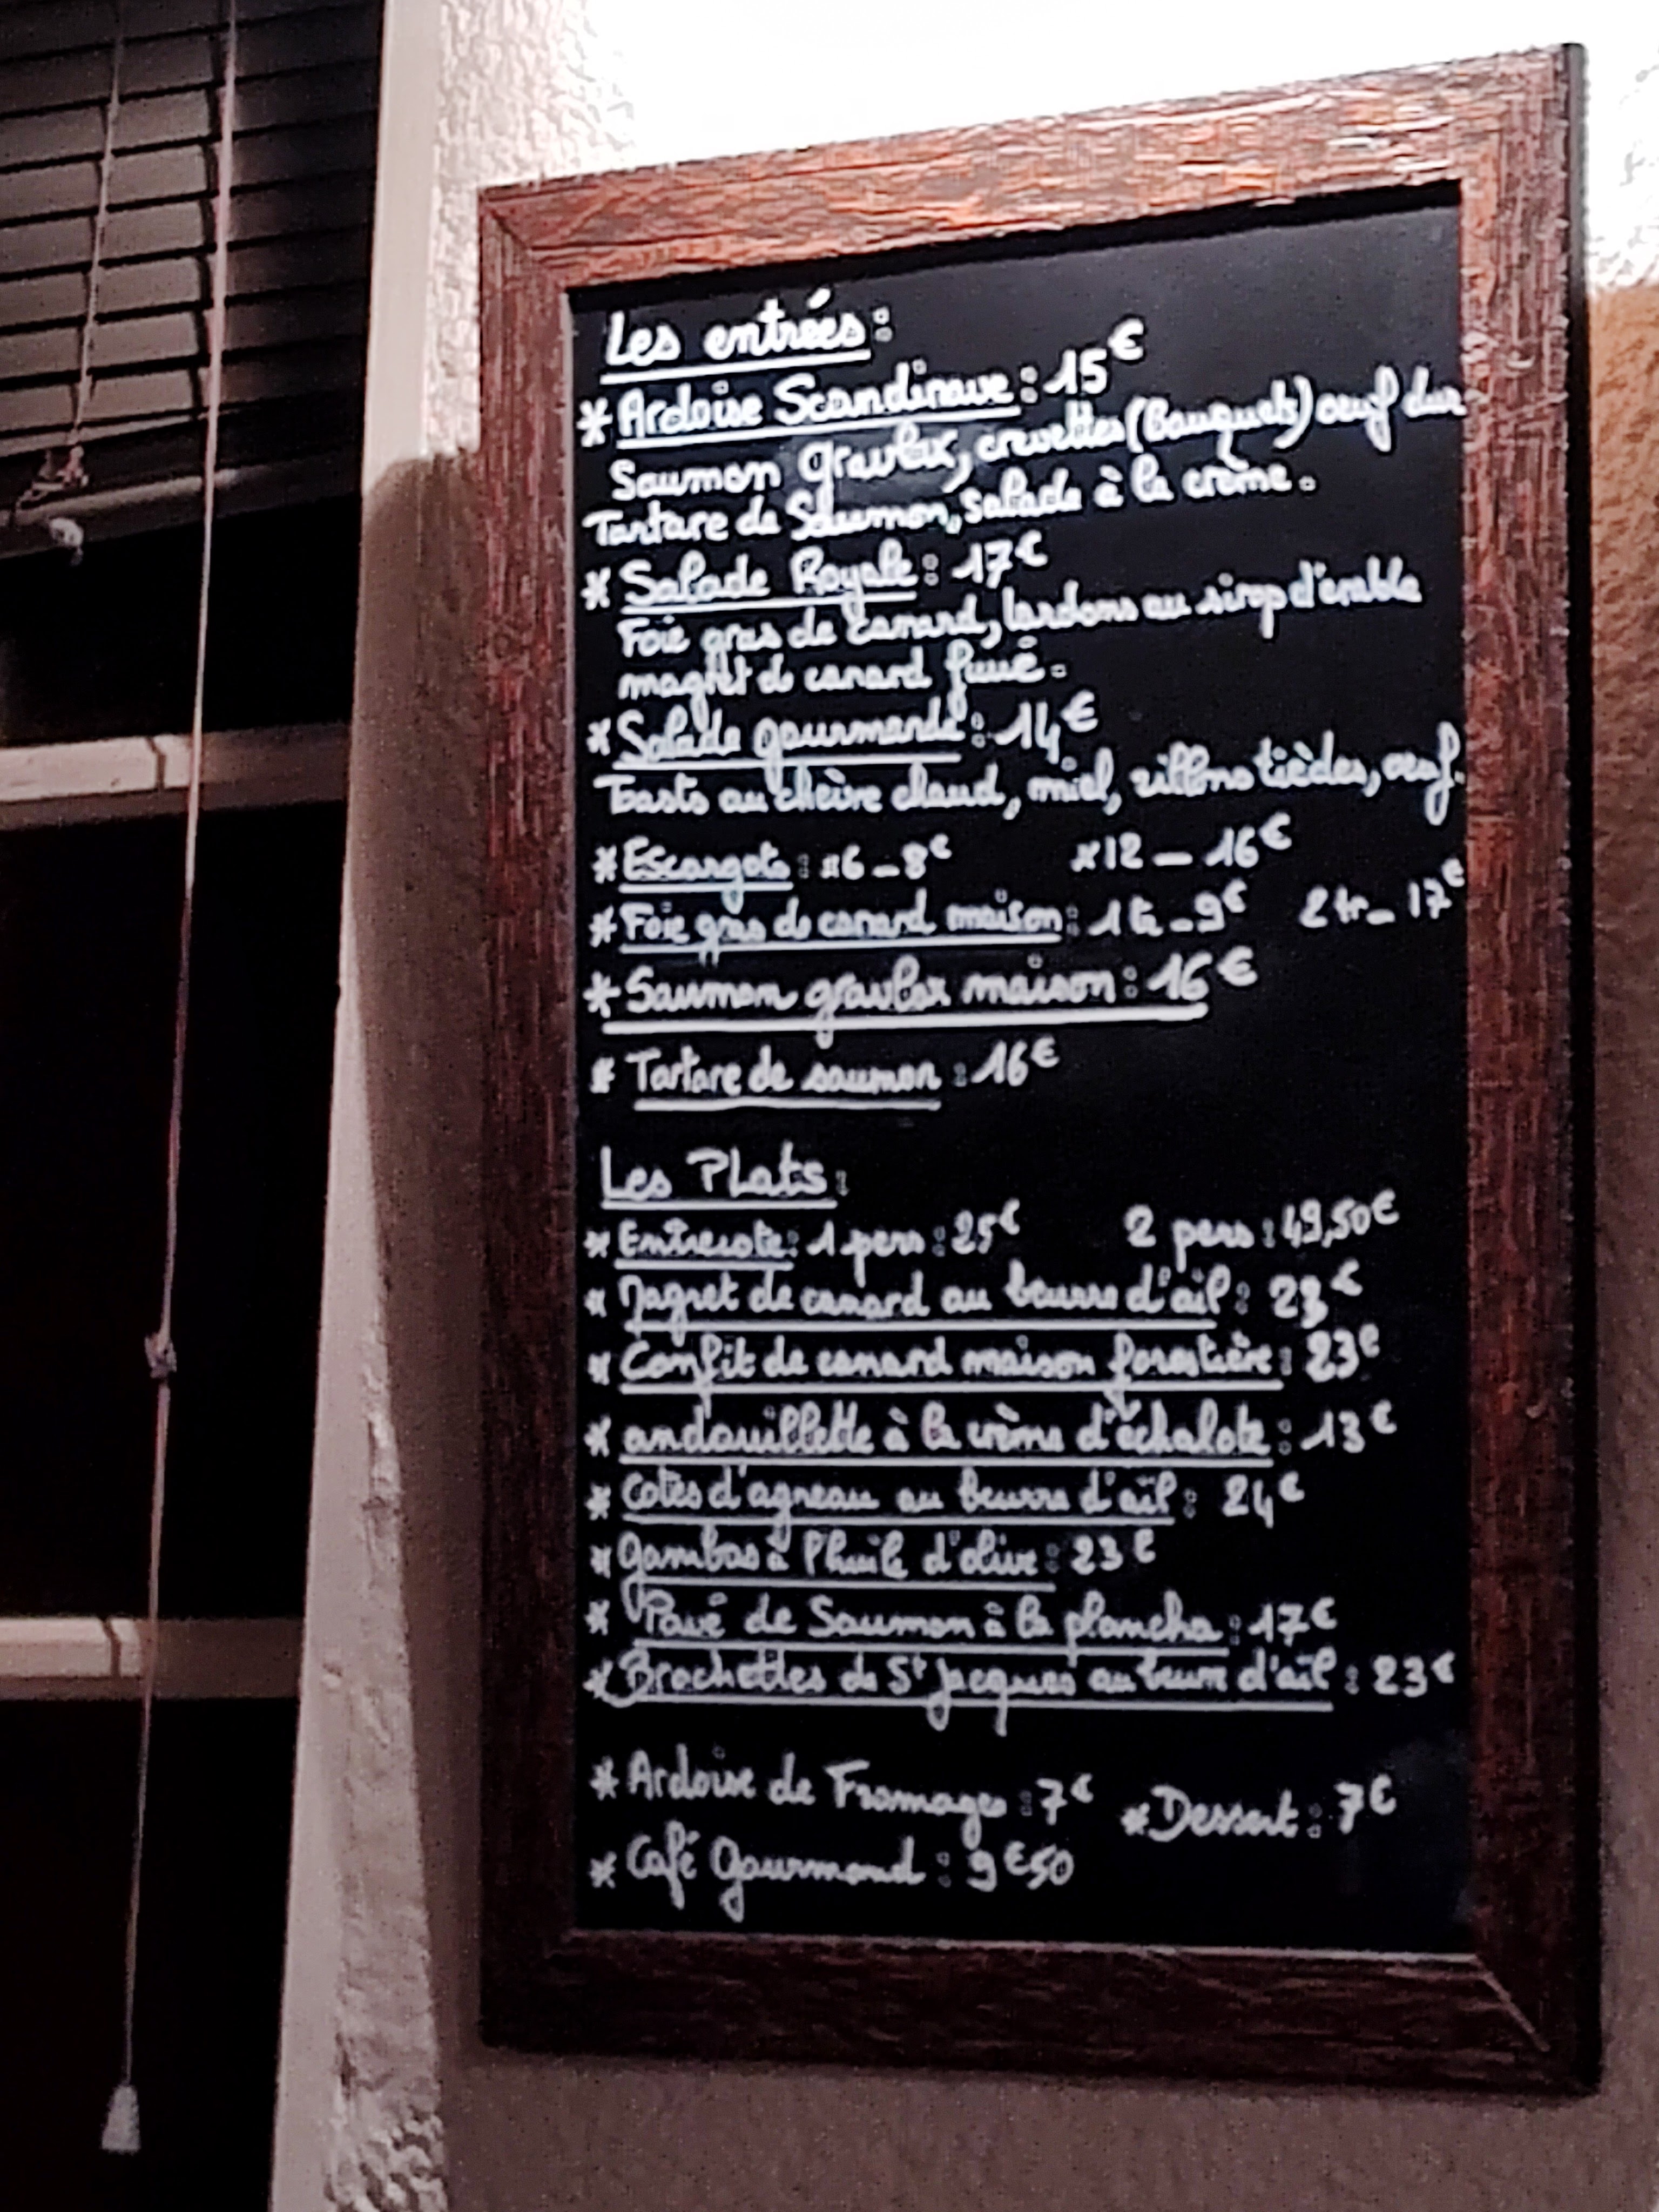 Les entrées:
* Ardoise Scandinave : 15€
Saumon gravlax, crevettes (Bouquets) oeuf dur
Tartare de Saumon, Salade à la crème.
* Salade Royale : 17€
Foie gras de canard, lardons au sirop d'érable
magret de canard fumé.
* Salade gourmande : 14€
Toasts au chèvre chaud, miel, rillons tièdes, oeuf.
* Escargots : x6 - 8€ x12 - 16€
* Foie gras de canard maison : 1 tr - 9€ 2 tr - 17€
* Saumon gravlax maison : 16€
* Tartare de saumon : 16€
Les Plats :
* Entrecote : 1 pers : 25€ 2 pers : 49,50€
* Magret de canard au beurre d'ail : 23€
* Confit de canard maison forestière : 23€
* andouillette à la crème d'échalote : 13€
* Cotes d'agneau au beurre d'ail : 24€
* Gambas à l'huile d'olive : 23€
* Pavé de Saumon à la plancha : 17€
* Brochettes de St Jacques au beurre d'ail : 23€
* Ardoise de Fromages : 7€ * Dessert : 7€
* Café Gourmand : 9€50